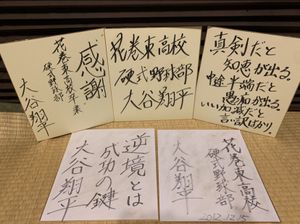 感謝
花巻東高校卒業
硬式野球部
大谷翔平
花巻東高校
硬式野球部
大谷翔平
真剣だと
知恵が出る。
中途半端だと
愚知が出る。
いい加減だと
言い訳ばかり。
逆境とは
成功の鍵
大谷翔平
花巻東高校
硬式野球部
大谷翔平
2012.12.15